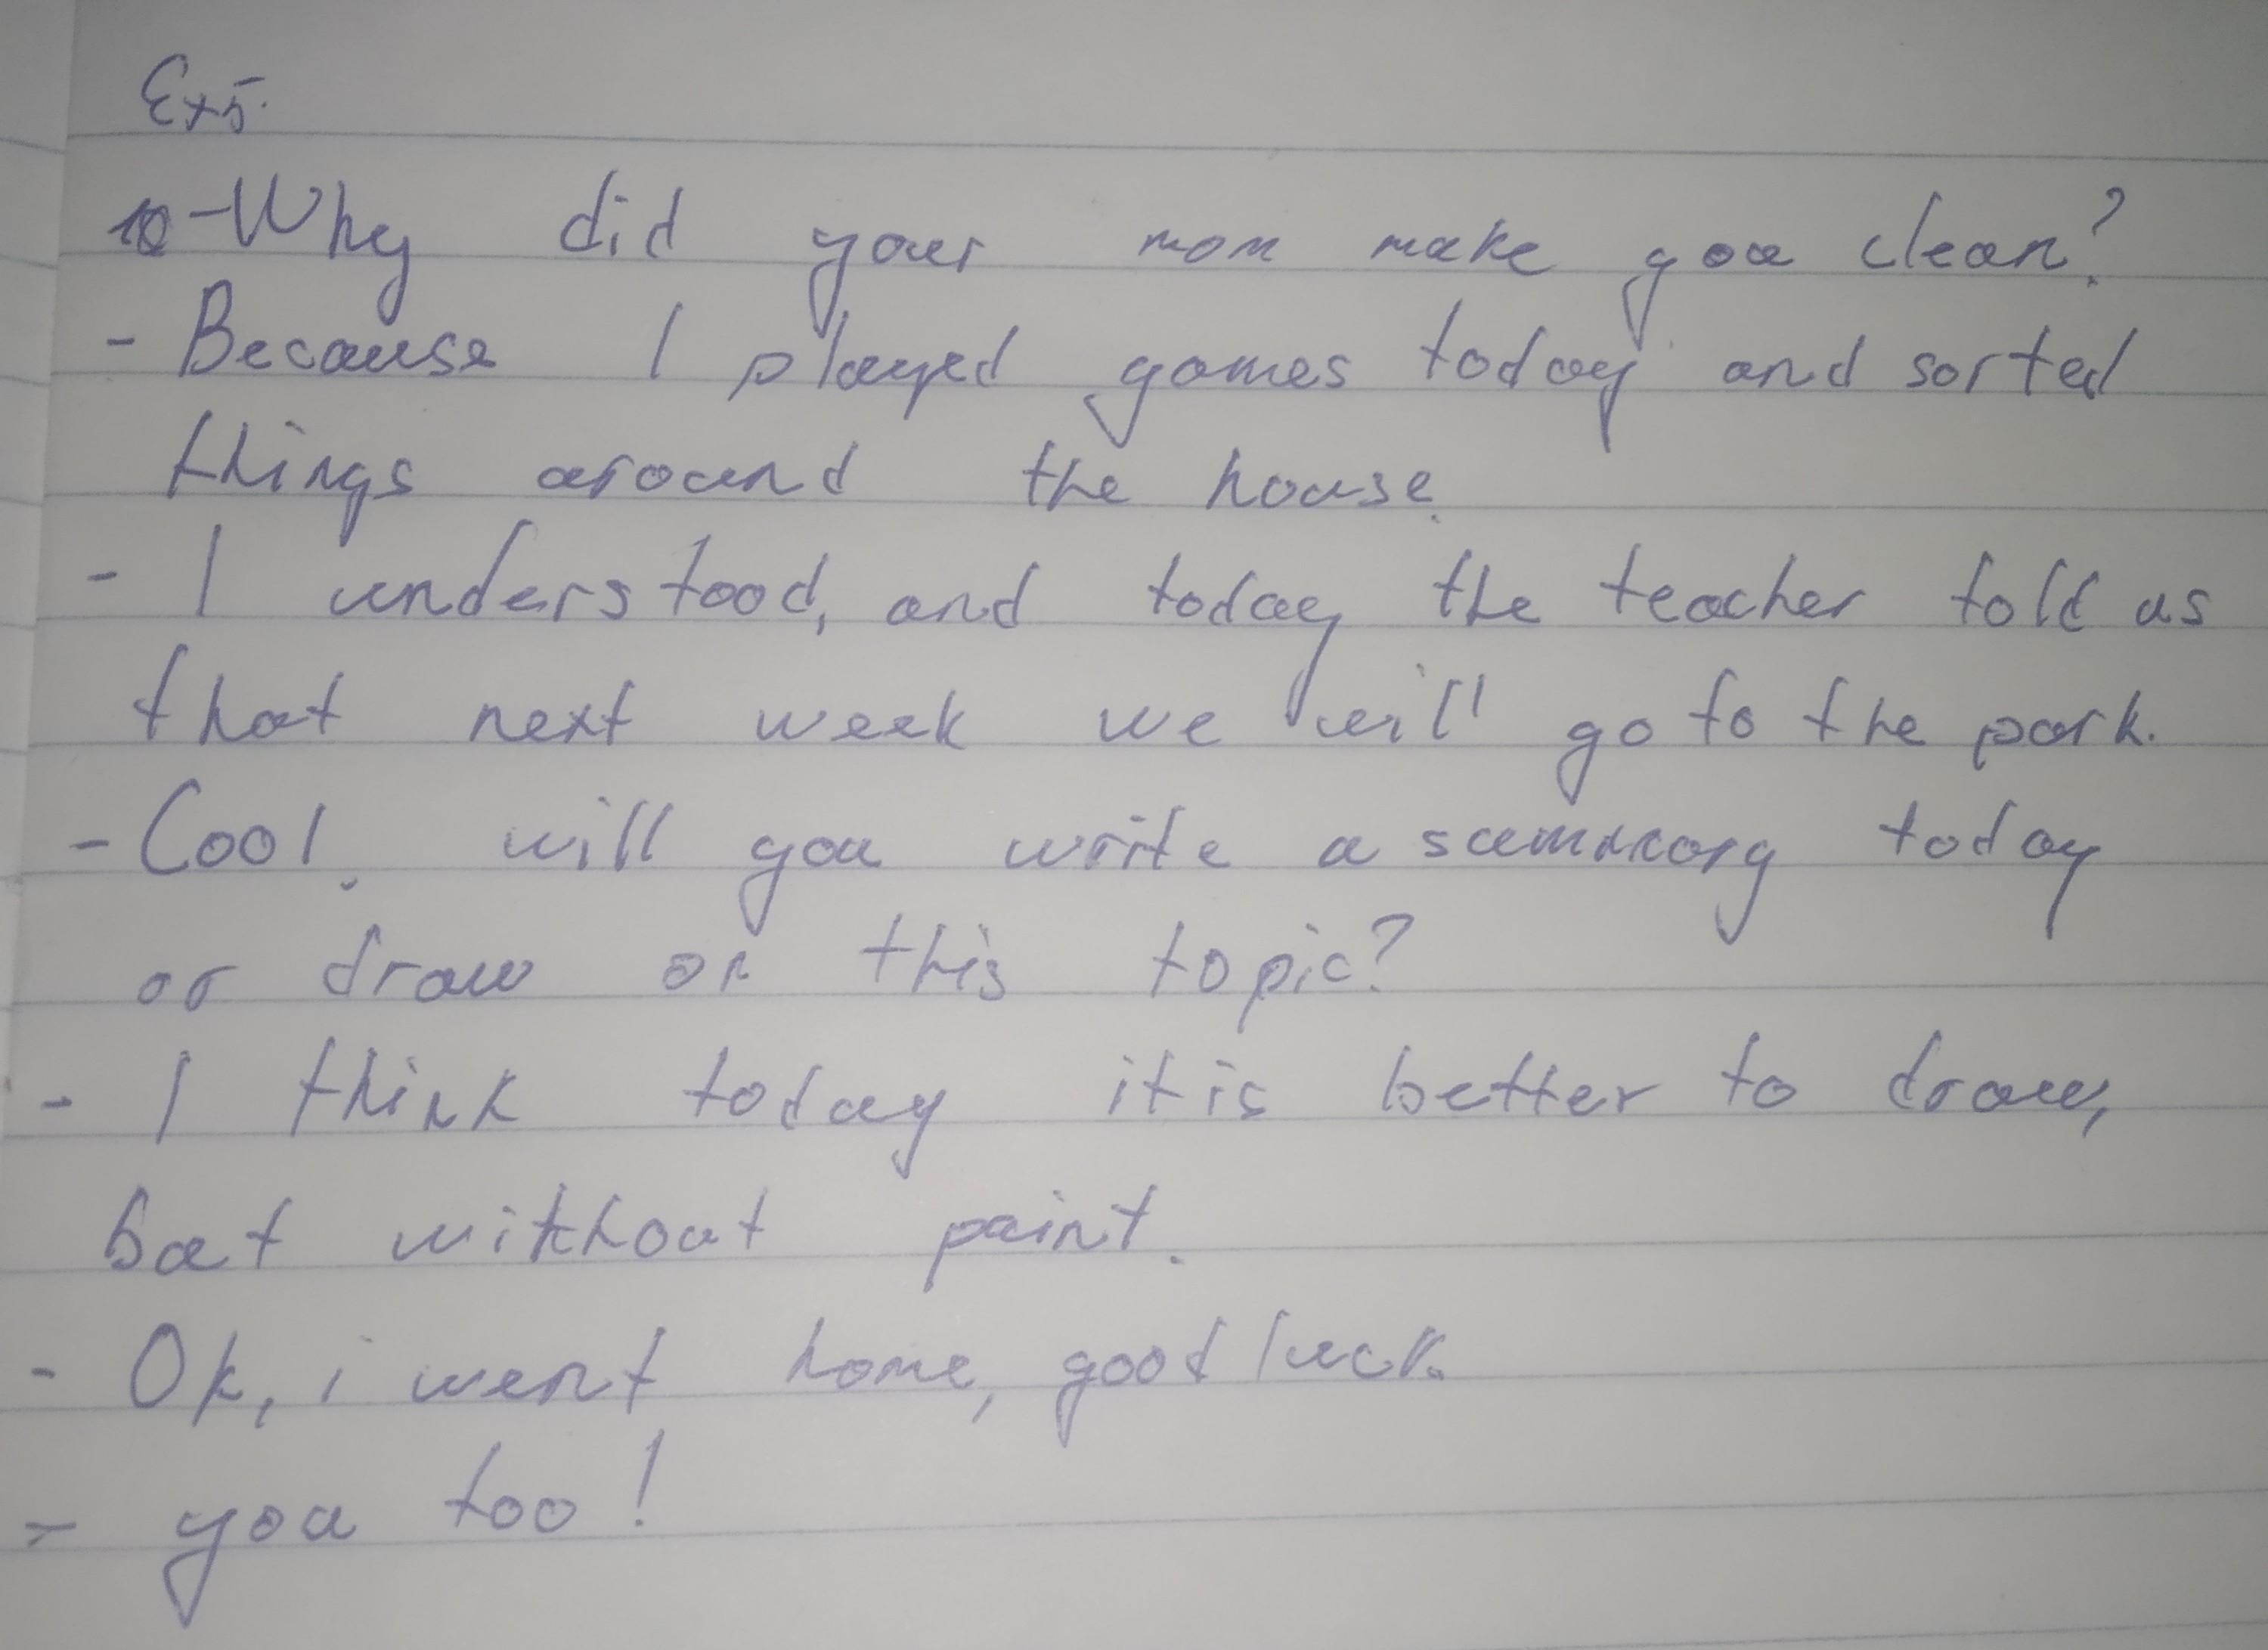 Ex5.
-Why did your mom make you clean?
- Because I played games today and sorted
things around the house.
- I understood, and today the teacher told us
that next week we will go to the park.
- Cool, will you write a summary today
or draw on this topic?
- I think today it is better to draw,
but without paint.
- Ok, i went home, good luck.
- you too!